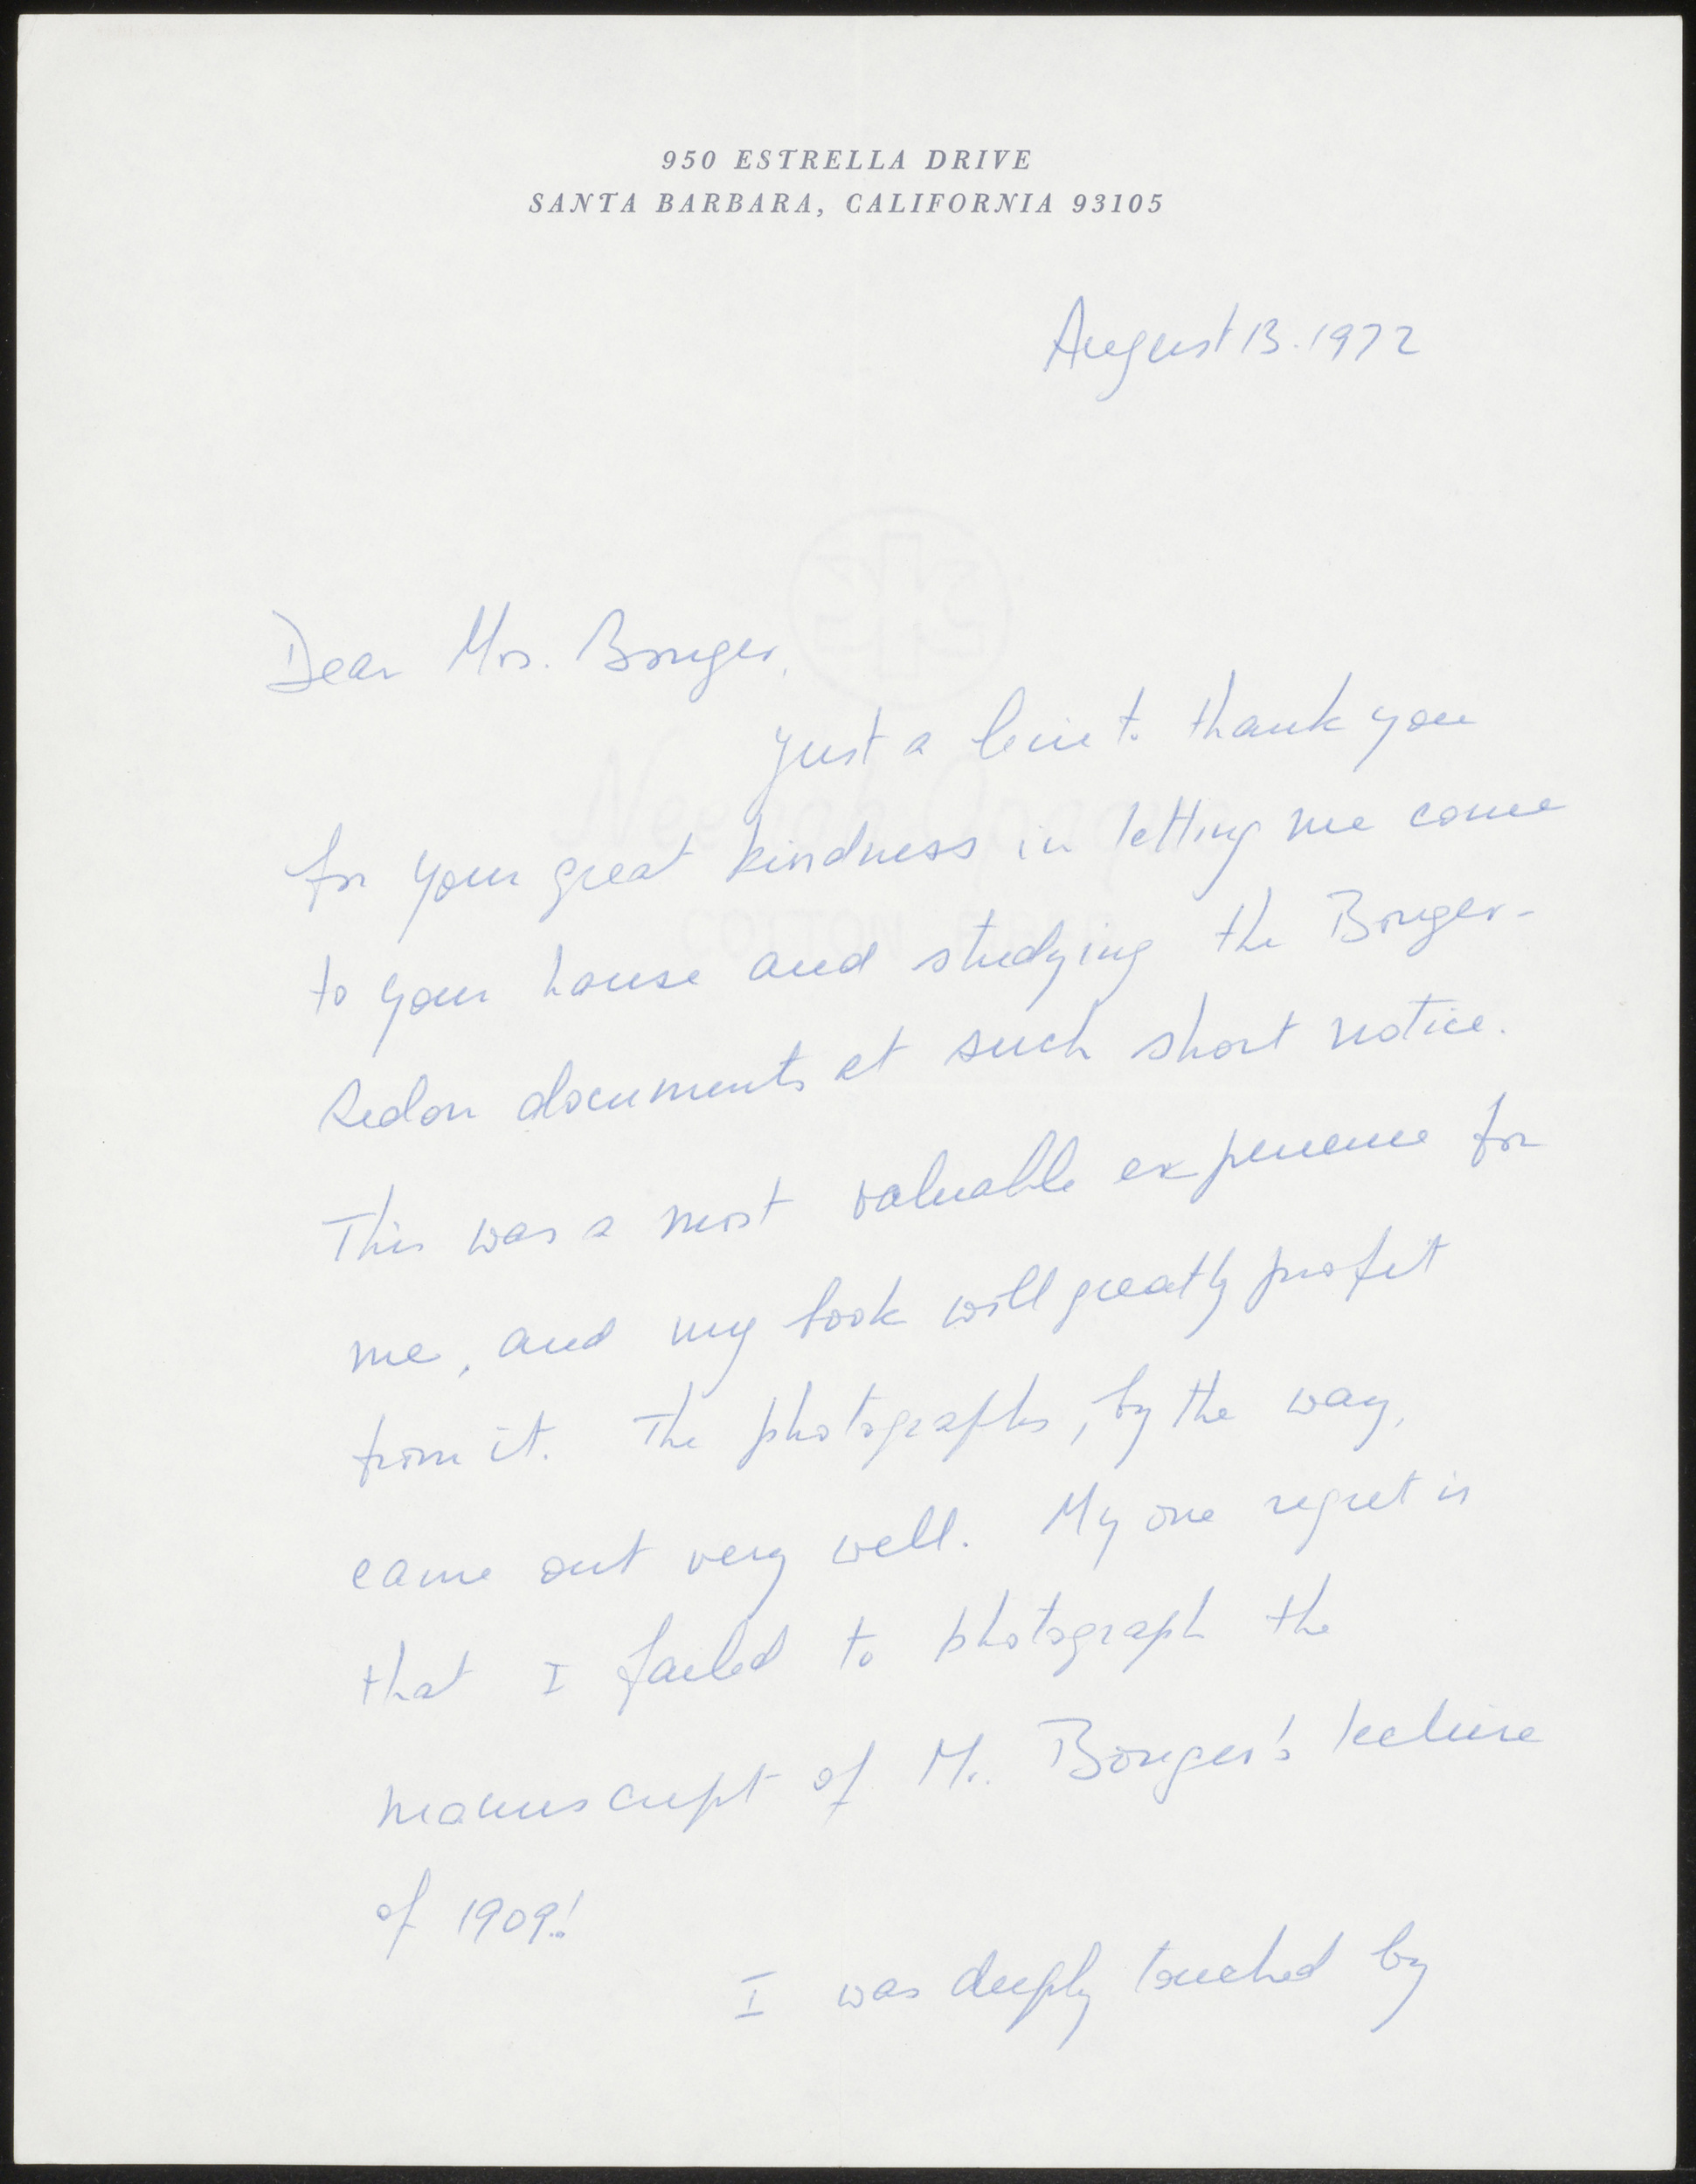 950 ESTRELLA DRIVE
SANTA BARBARA, CALIFORNIA 93105
August 13. 1972
Dear Mrs. Bonger,
just a line to thank you
for your great kindness in letting me come
to your house and studying the Bonger-
Redon documents at such short notice.
This was a most valuable experience for
me, and my book will greatly profit
from it. The photographs, by the way,
came out very well. My one regret is
that I failed to photograph the
manuscript of Mr. Bonger's lecture
of 1909!
I was deeply touched by
Neenah Opaque
COTTON FIBER